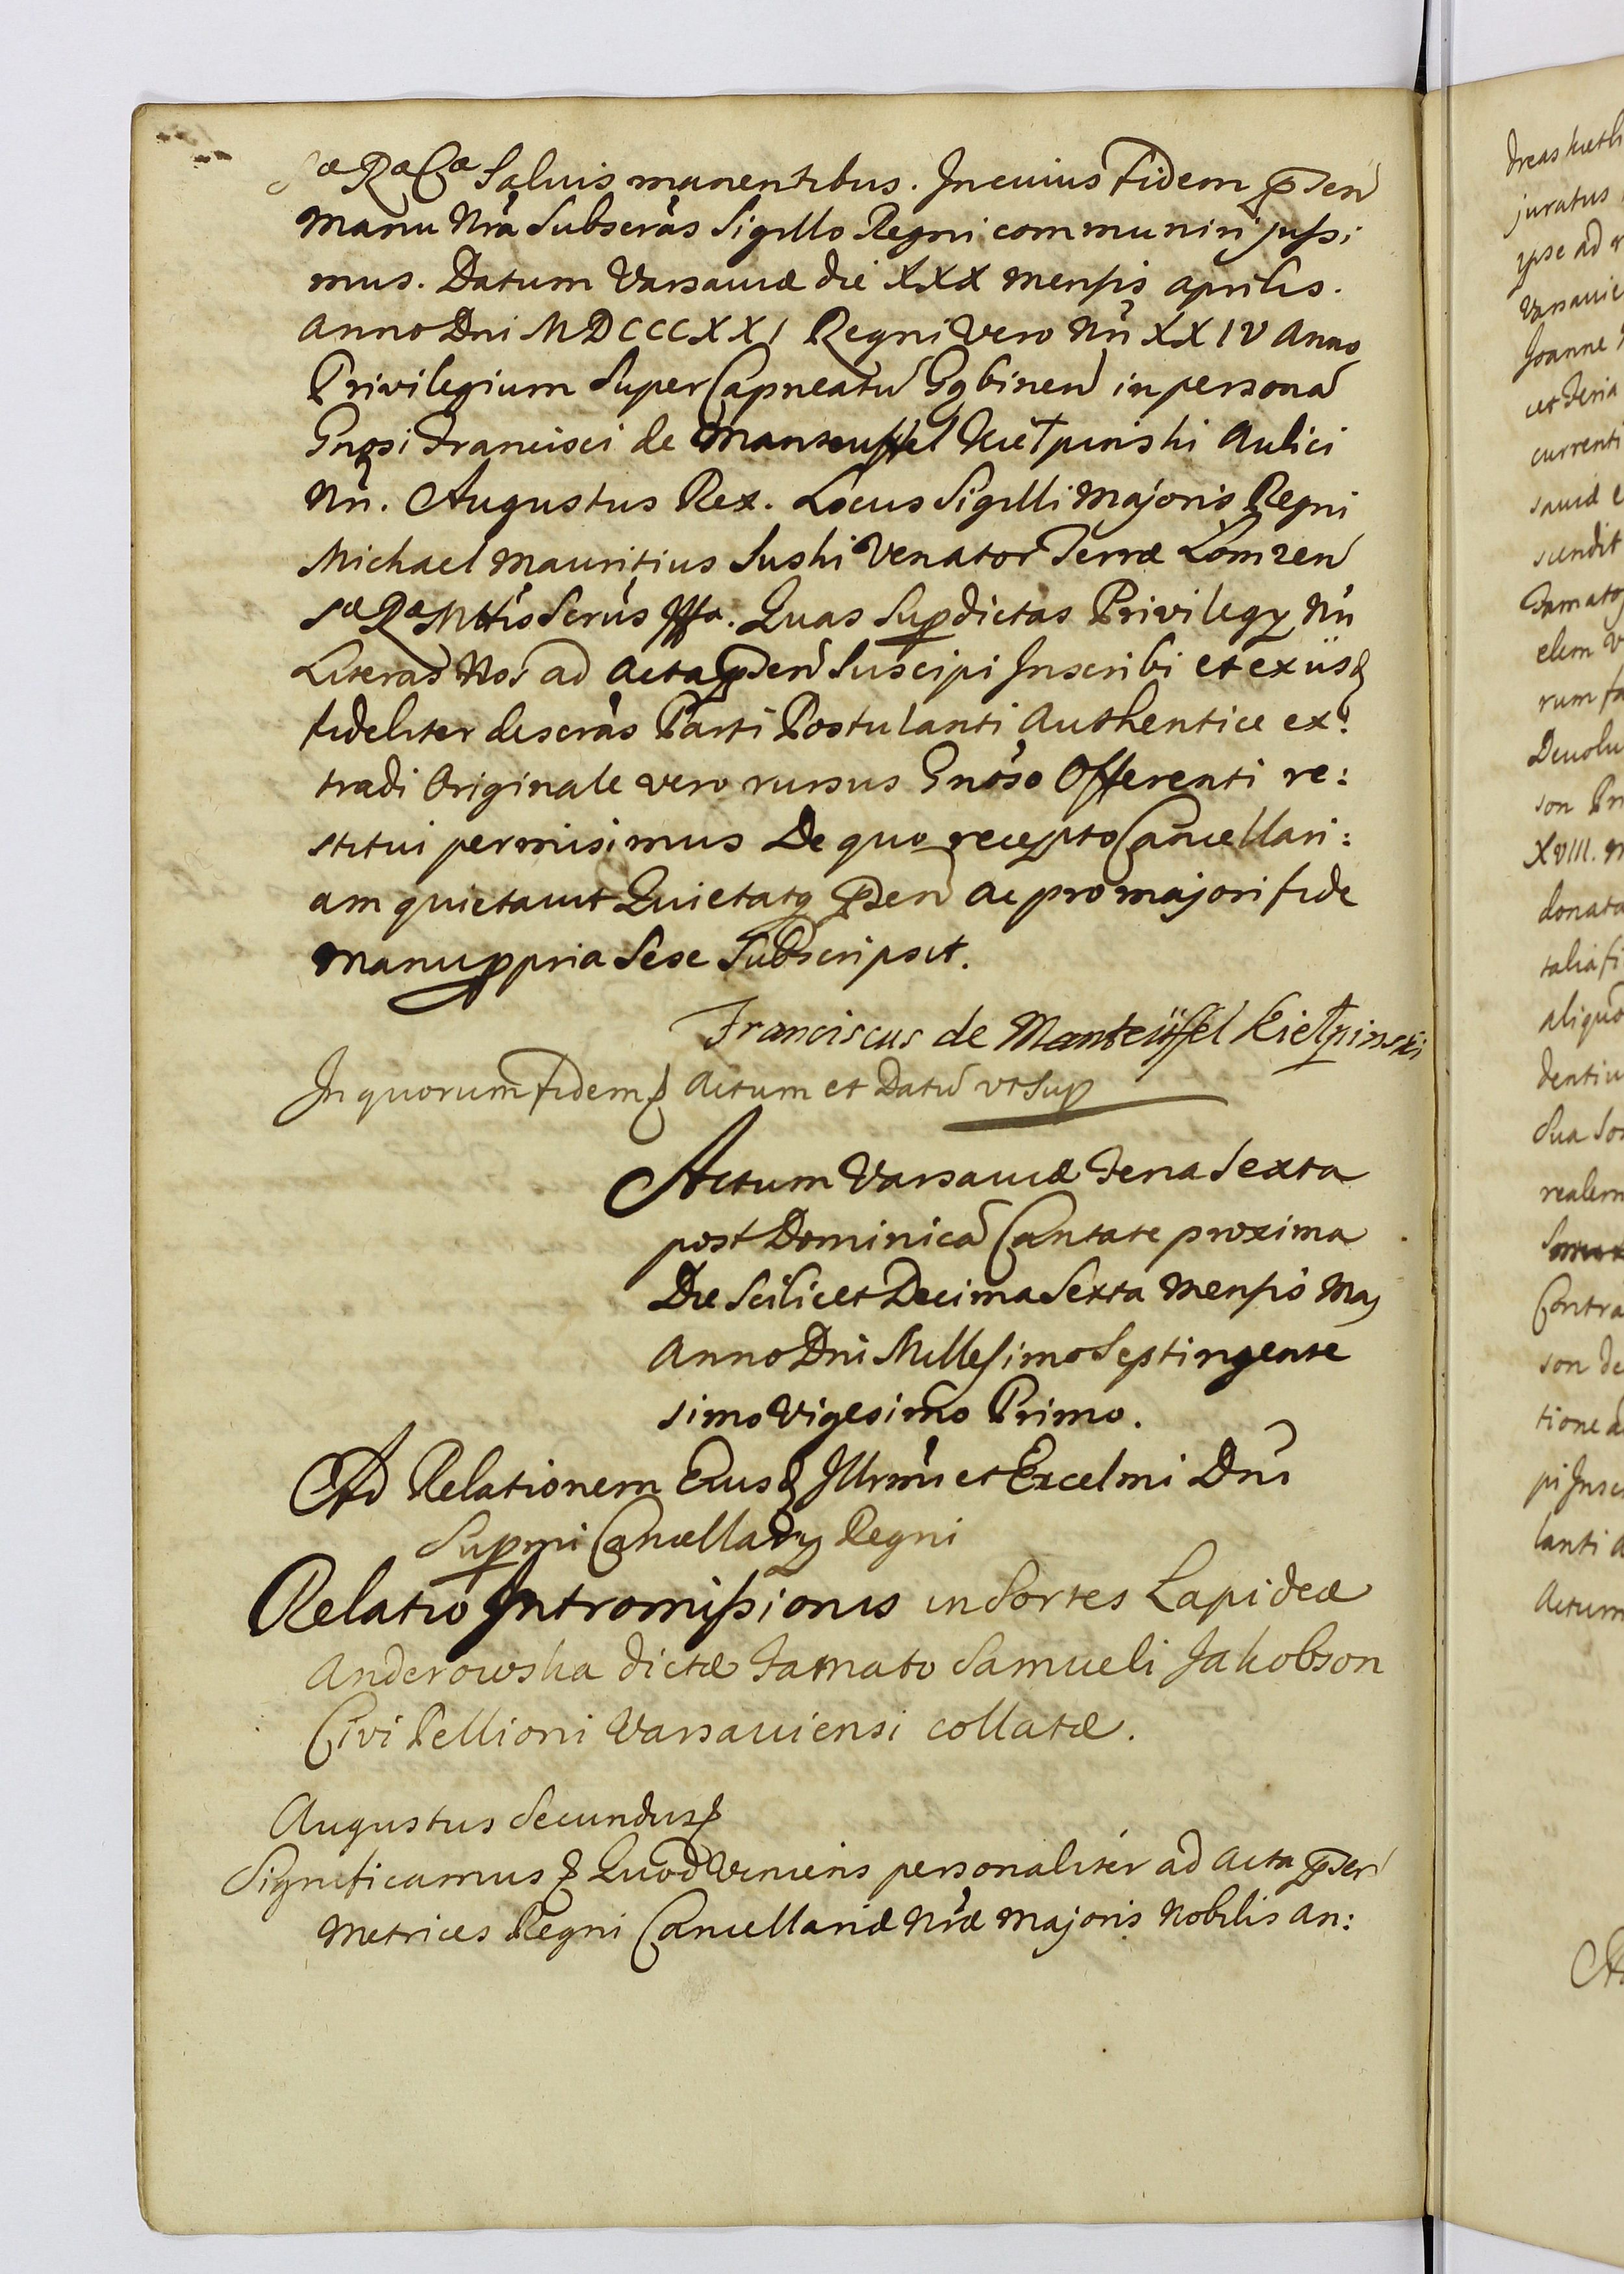 Sæ Ræ Cæ Saluis manentibus. In cuius Fidem pñsen
Manu Nrã Subscrãs Sigillo Regni communiri jussi
mus. Datum Varsaviæ die XXX Mensis Aprilis.
Anno Dni MDCCCXXI Regni Vero Nri XXIV Anno
Privilegium Super Capneatu Gybinen in persona
Gnosi Francisci de Manteuffel Kiełpinski Aulici
Nri. Augustus Rex. Locus Sigilli Majoris Regni
Michael Mauritius Suski Venator Terræ Lomzen
Sæ Ræ Mttis Secrus mpp. Quas Supdictas Privilegy Nri
Literas Nos ad Acta pñsen Suscipi Inscribi et ex iisd
fideliter descrãs Parti Postulanti Authentice ex:
tradi Originale vero rursus Gnoso Offerenti re:
stitui permisimus De quo recepto Cancellari:
am quietavit Quietatq pñsen ac pro majori fide
Manu ppria Sese Subscripsit.
Franciscus de Manteüffel Kiełpinski
In quorum fidem & Actum et Datũ vt Sup
Actum Varsaviæ Feria Sexta
post Dominicã Cantate proxima
Die Scilicet Decima Sexta Mensis Maj
Anno Dni Millesimo Septingente
simo Vigesimo Primo.
Ad Relationem Eiusd Illrmi et Excelmi Dni
Supmi Cancellary Regni
Relatio Intromissionis in Sortes Lapideæ
Anderowska dictæ Famato Samueli Jakobson
Civi Pellioni Varsaviensi collatæ.
Augustus Secundus &
Significamus & Quod Veniens personaliter ad Acta pñsen
Metrices Regni Cancellariæ Nræ Majoris Nobilis An:
dreas
juratus
ypse ad
Joanne
et Feria
currenti
saviæ
scendit
Famato
rum
Devolu
son
XVIII.
donata
talia
aliquo
dentiu
Sua
realem
Contra
son de
tione
pi Insc
lanti
Actum